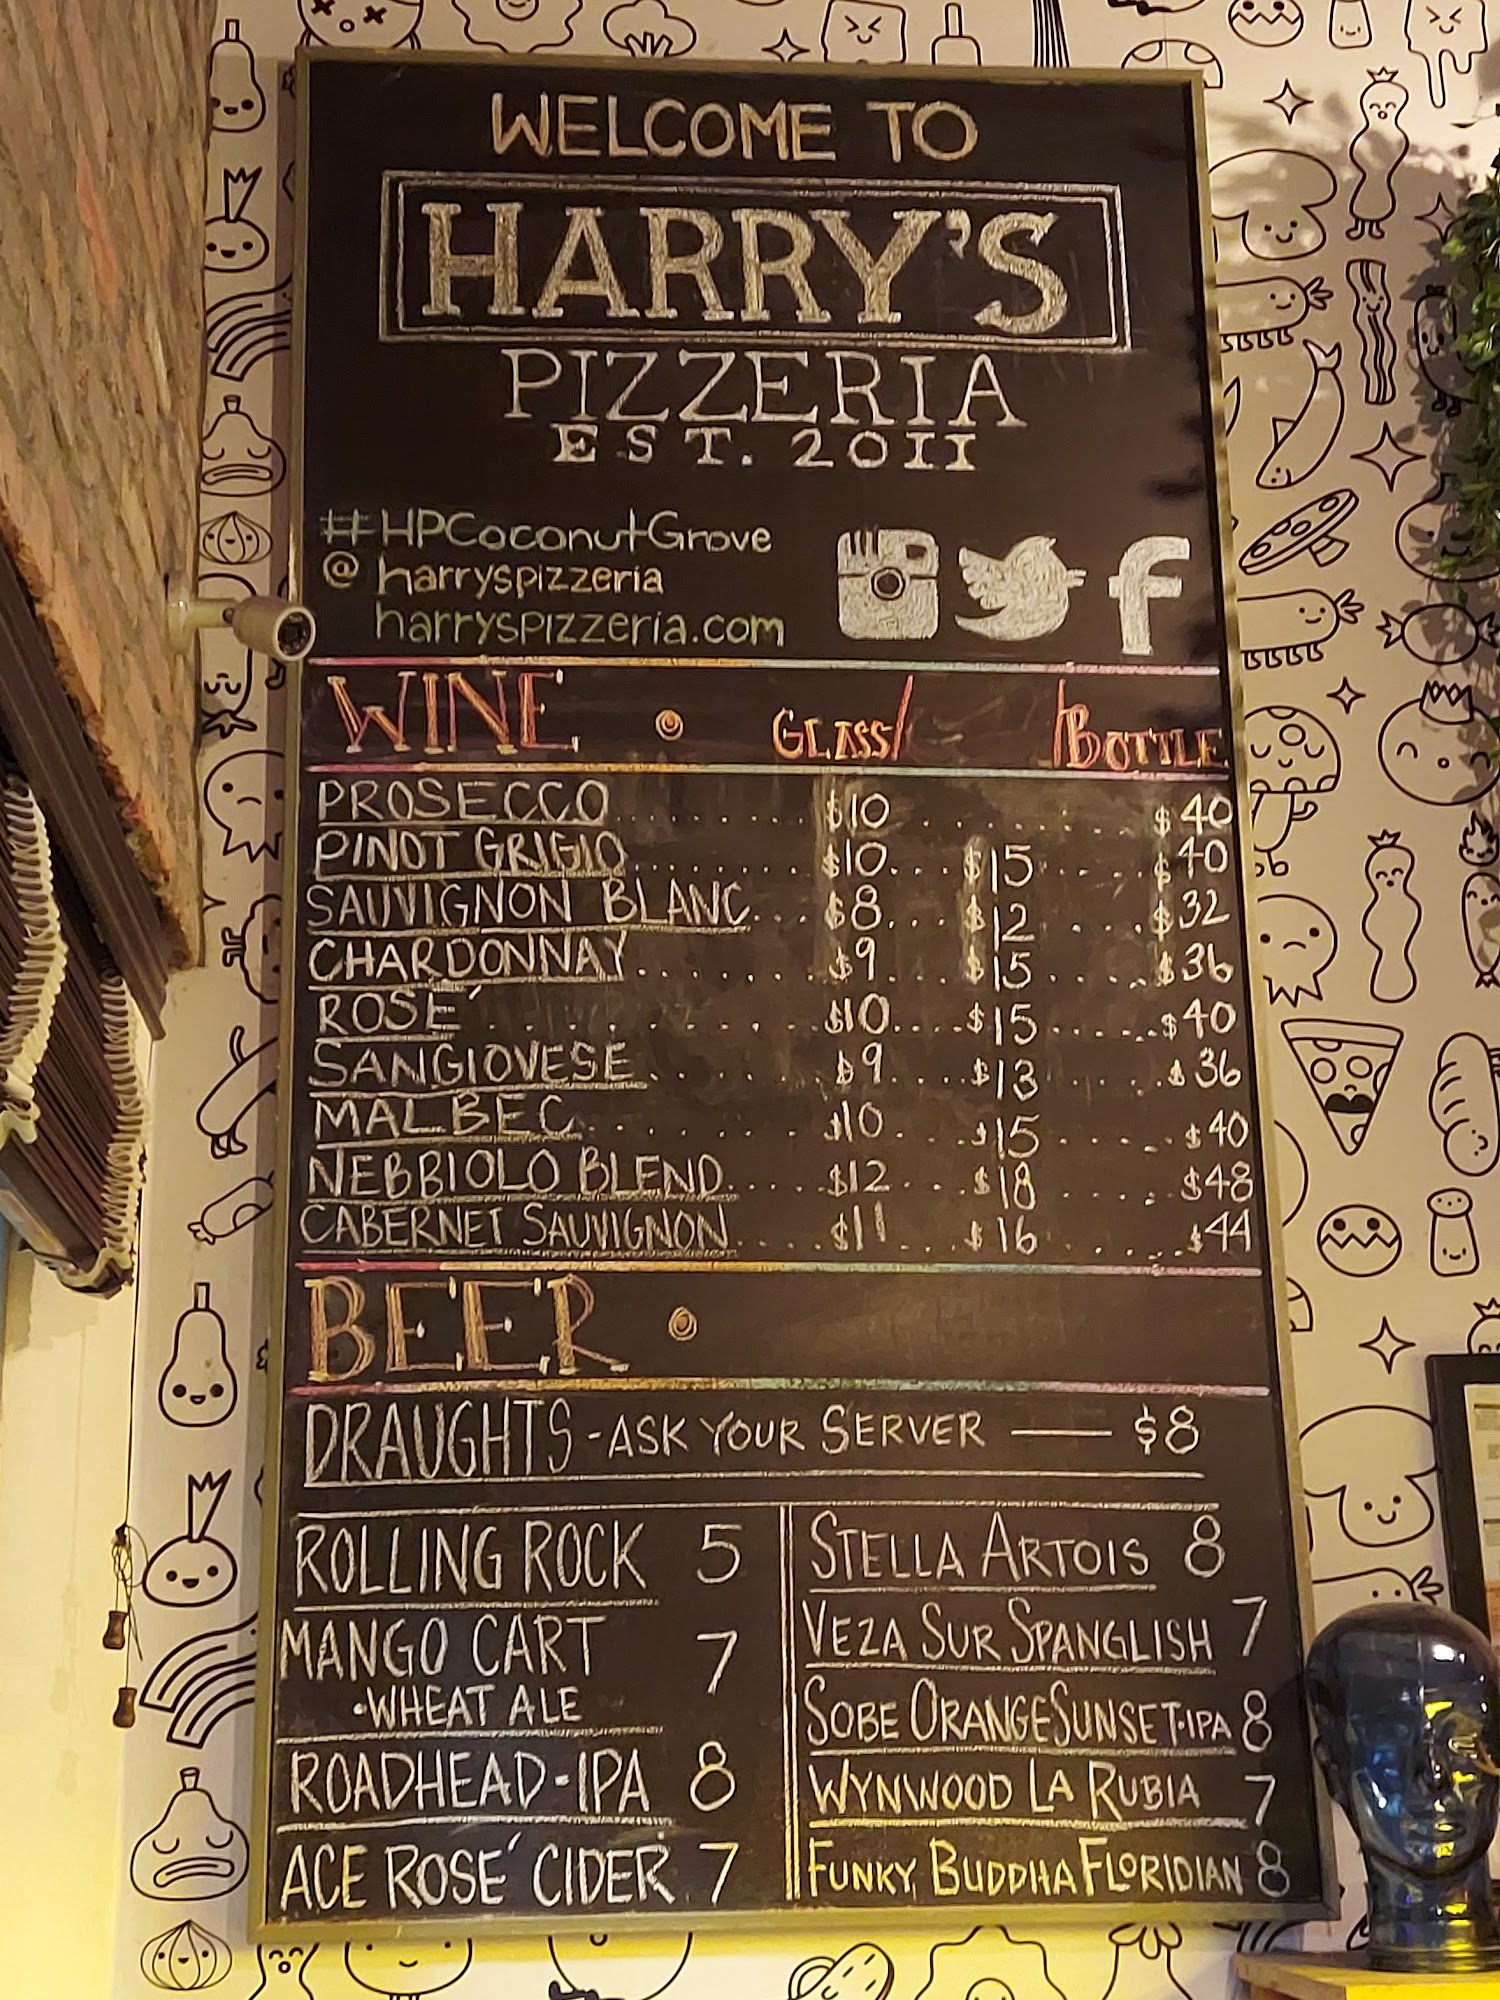 WELCOME TO
HARRY'S
PIZZERIA
EST. 2011
#HPCoconutGrove
@harryspizzeria
harryspizzeria.com
WINE GLASS/ /BOTTLE
PROSECCO.......... $10 ......... $40
PINOT GRIGIO.......... $10... $15..... $40
SAUVIGNON BLANC... $8... $12 .... $32
CHARDONNAY....... $9 ... $15..... $36
ROSÉ............. $10.... $15...... $40
SANGIOVESE....... $9 .... $13 ..... $36
MALBEC.......... $10.... $15..... $40
NEBBIOLO BLEND..... $12.... $18 ..... $48
CABERNET SAUVIGNON.... $11.... $16 ..... $44
BEER
DRAUGHTS - ASK YOUR SERVER —— $8
ROLLING ROCK 5
MANGO CART 7
•WHEAT ALE
ROADHEAD-IPA 8
ACE ROSÉ CIDER 7
STELLA ARTOIS 8
VEZA SUR SPANGLISH 7
SOBE ORANGE SUNSET•IPA 8
WYNWOOD LA RUBIA 7
FUNKY BUDDHA FLORIDIAN 8